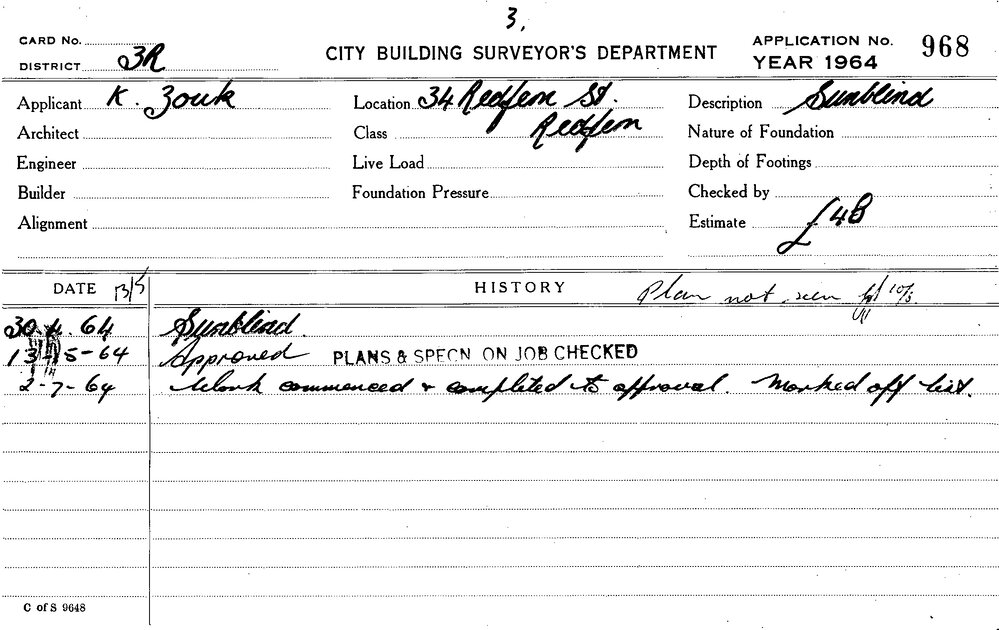 3.
CARD No.
DISTRICT 3R
CITY BUILDING SURVEYOR'S DEPARTMENT
APPLICATION No. 968
YEAR 1964
Applicant K. Zouk
Location 34 Redfern St. Redfern
Description Sunblind
Architect
Class
Nature of Foundation
Engineer
Live Load
Depth of Footings
Builder
Foundation Pressure
Checked by
Alignment
Estimate £48
DATE 13/5
HISTORY
Plan not seen 10/5
30.4.64 Sunblind.
13-5-64 Approved PLANS & SPECN ON JOB CHECKED
2-7-64 Work commenced & completed to approval. Marked off list.
C of S 9648